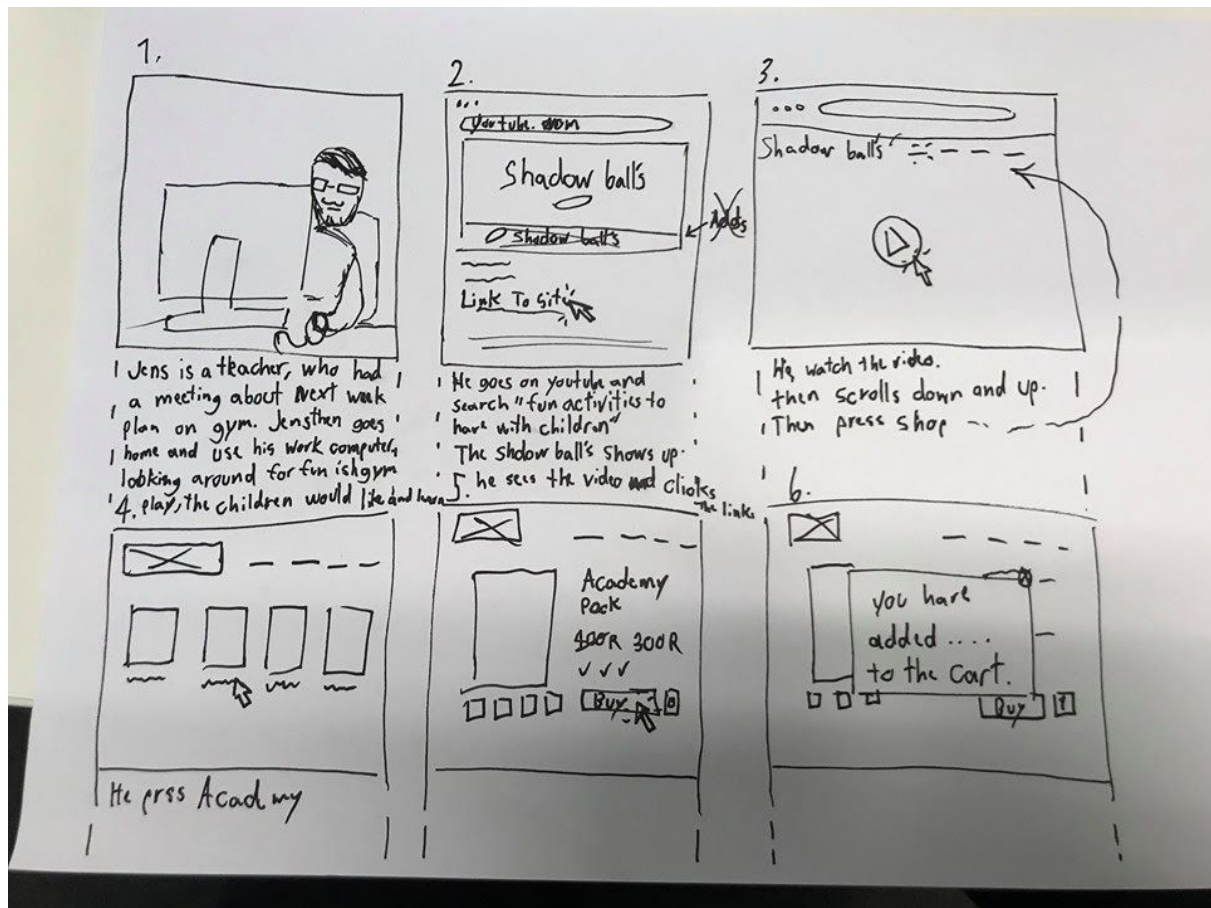 1.
Jens is a teacher, who had
a meeting about next week
plan on gym. Jens then goes
home and use his work computer,
looking around for fun ish gym
play, the children would like and learn
2.
youtube.com
Shadow ball's
Shadow ball's
Adds
Link To site
He goes on youtube and
search "fun activities to
have with children"
The Shdow ball's shows up.
he sees the video and clicks
the links
3.
Shadow ball's
He watch the video.
then scrolls down and up.
Then press shop
4.
He prss Academy
5.
Academy
Pack
400R 300R
Buy
6.
you have
added ....
to the cart.
Buy 1